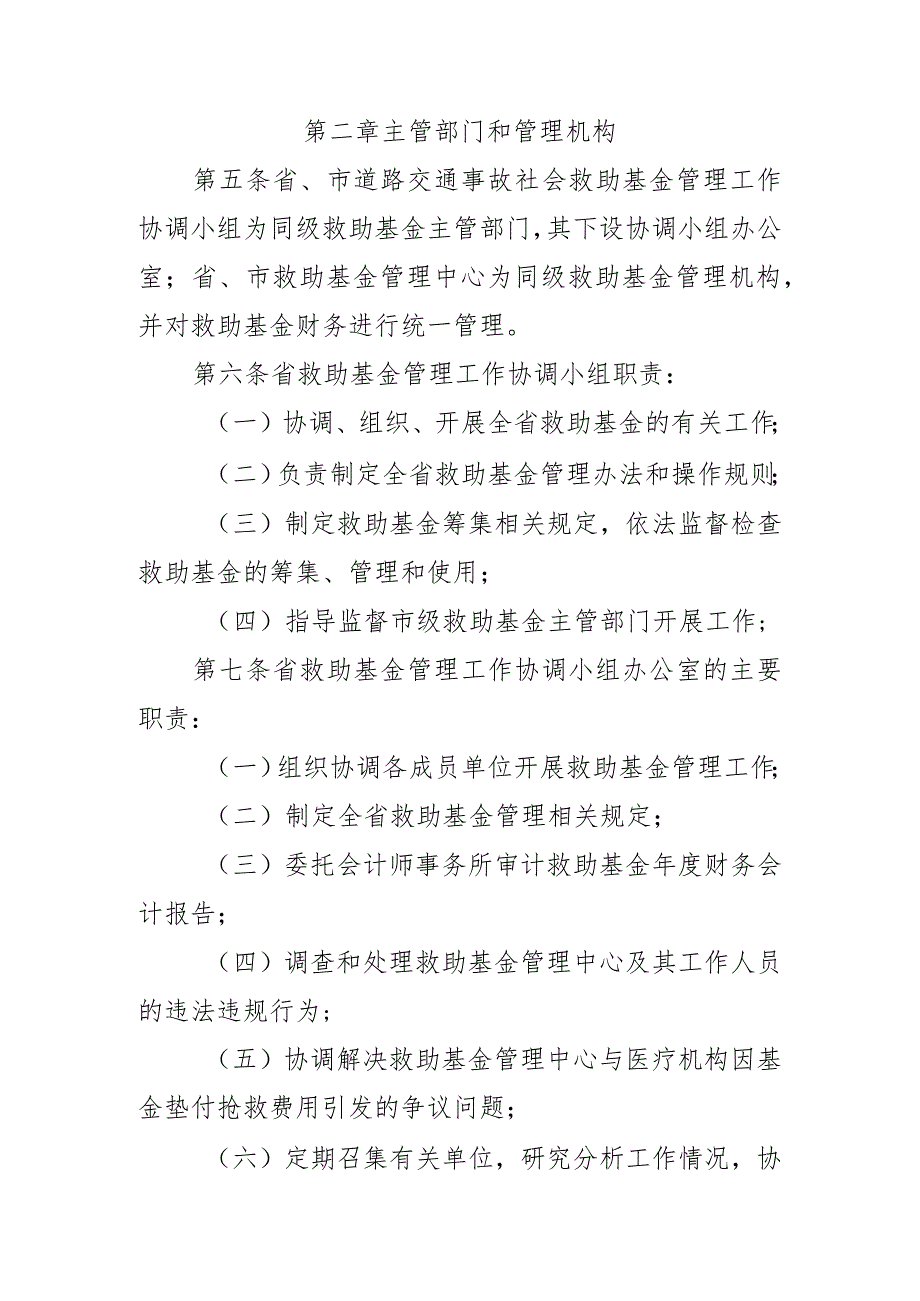 第二章主管部门和管理机构
第五条省、市道路交通事故社会救助基金管理工作
协调小组为同级救助基金主管部门,其下设协调小组办公
室；省、市救助基金管理中心为同级救助基金管理机构,
并对救助基金财务进行统一管理。
第六条省救助基金管理工作协调小组职责：
（一）协调、组织、开展全省救助基金的有关工作；
（二）负责制定全省救助基金管理办法和操作规则；
（三）制定救助基金筹集相关规定，依法监督检查
救助基金的筹集、管理和使用；
（四）指导监督市级救助基金主管部门开展工作；
第七条省救助基金管理工作协调小组办公室的主要
职责：
（一）组织协调各成员单位开展救助基金管理工作；
（二）制定全省救助基金管理相关规定；
（三）委托会计师事务所审计救助基金年度财务会
计报告；
（四）调查和处理救助基金管理中心及其工作人员
的违法违规行为；
（五）协调解决救助基金管理中心与医疗机构因基
金垫付抢救费用引发的争议问题；
（六）定期召集有关单位，研究分析工作情况，协